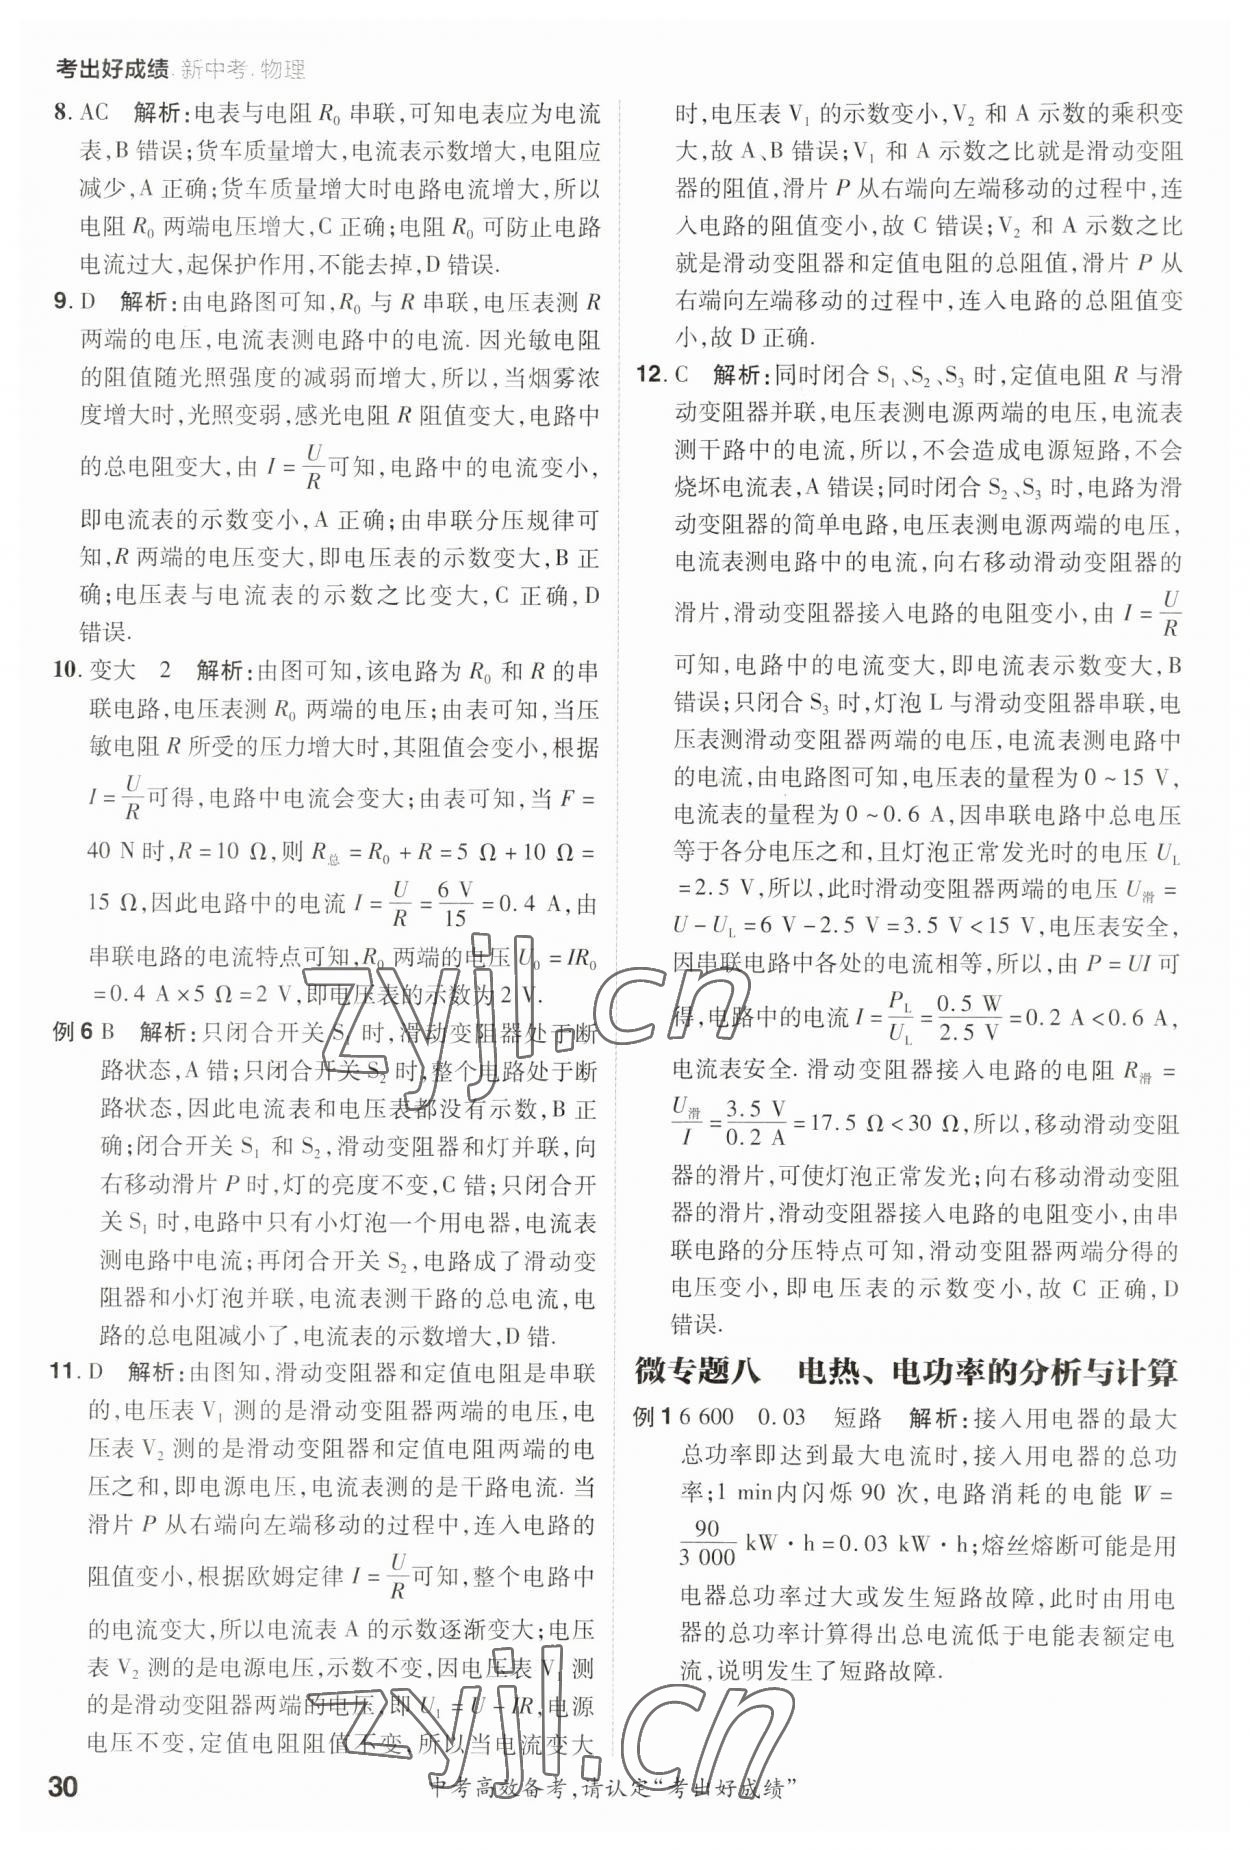 考出好成绩.新中考.物理
8. AC 解析:电表与电阻 R₀ 串联,可知电表应为电流
表,B 错误;货车质量增大,电流表示数增大,电阻应
减少,A 正确;货车质量增大时电路电流增大,所以
电阻 R₀ 两端电压增大,C 正确;电阻 R₀ 可防止电路
电流过大,起保护作用,不能去掉,D 错误.
9. D 解析:由电路图可知,R₀ 与 R 串联,电压表测 R
两端的电压,电流表测电路中的电流. 因光敏电阻
的阻值随光照强度的减弱而增大,所以,当烟雾浓
度增大时,光照变弱,感光电阻 R 阻值变大,电路中
的总电阻变大,由 I = U/R 可知,电路中的电流变小,
即电流表的示数变小,A 正确;由串联分压规律可
知,R 两端的电压变大,即电压表的示数变大,B 正
确;电压表与电流表的示数之比变大,C 正确,D
错误.
10. 变大 2 解析:由图可知,该电路为 R₀ 和 R 的串
联电路,电压表测 R₀ 两端的电压;由表可知,当压
敏电阻 R 所受的压力增大时,其阻值会变小,根据
I = U/R 可得,电路中电流会变大;由表可知,当 F =
40 N 时,R = 10 Ω,则 R总 = R₀ + R = 5 Ω + 10 Ω =
15 Ω,因此电路中的电流 I = U/R = 6 V/15 = 0.4 A,由
串联电路的电流特点可知,R₀ 两端的电压 U₀ = IR₀
= 0.4 A × 5 Ω = 2 V,即电压表的示数为 2 V.
例 6 B 解析:只闭合开关 S₁ 时,滑动变阻器处于断
路状态,A 错;只闭合开关 S₂ 时,整个电路处于断
路状态,因此电流表和电压表都没有示数,B 正
确;闭合开关 S₁ 和 S₂,滑动变阻器和灯并联,向
右移动滑片 P 时,灯的亮度不变,C 错;只闭合开
关 S₁ 时,电路中只有小灯泡一个用电器,电流表
测电路中电流;再闭合开关 S₂,电路成了滑动变
阻器和小灯泡并联,电流表测干路的总电流,电
路的总电阻减小了,电流表的示数增大,D 错.
11. D 解析:由图知,滑动变阻器和定值电阻是串联
的,电压表 V₁ 测的是滑动变阻器两端的电压,电
压表 V₂ 测的是滑动变阻器和定值电阻两端的电
压之和,即电源电压,电流表测的是干路电流. 当
滑片 P 从右端向左端移动的过程中,连入电路的
阻值变小,根据欧姆定律 I = U/R 可知,整个电路中
的电流变大,所以电流表 A 的示数逐渐变大;电压
表 V₂ 测的是电源电压,示数不变,因电压表 V₁ 测
的是滑动变阻器两端的电压,即 U₁ = U - IR,电源
电压不变,定值电阻阻值不变,所以当电流变大
时,电压表 V₁ 的示数变小,V₂ 和 A 示数的乘积变
大,故 A、B 错误;V₁ 和 A 示数之比就是滑动变阻
器的阻值,滑片 P 从右端向左端移动的过程中,连
入电路的阻值变小,故 C 错误;V₂ 和 A 示数之比
就是滑动变阻器和定值电阻的总阻值,滑片 P 从
右端向左端移动的过程中,连入电路的总阻值变
小,故 D 正确.
12. C 解析:同时闭合 S₁、S₂、S₃ 时,定值电阻 R 与滑
动变阻器并联,电压表测电源两端的电压,电流表
测干路中的电流,所以,不会造成电源短路,不会
烧坏电流表,A 错误;同时闭合 S₂、S₃ 时,电路为滑
动变阻器的简单电路,电压表测电源两端的电压,
电流表测电路中的电流,向右移动滑动变阻器的
滑片,滑动变阻器接入电路的电阻变小,由 I = U/R
可知,电路中的电流变大,即电流表示数变大,B
错误;只闭合 S₃ 时,灯泡 L 与滑动变阻器串联,电
压表测滑动变阻器两端的电压,电流表测电路中
的电流,由电路图可知,电压表的量程为 0 ~ 15 V,
电流表的量程为 0 ~ 0.6 A,因串联电路中总电压
等于各分电压之和,且灯泡正常发光时的电压 U_L
= 2.5 V,所以,此时滑动变阻器两端的电压 U滑 =
U - U_L = 6 V - 2.5 V = 3.5 V < 15 V,电压表安全,
因串联电路中各处的电流相等,所以,由 P = UI 可
得,电路中的电流 I = P_L/U_L = 0.5 W/2.5 V = 0.2 A < 0.6 A,
电流表安全. 滑动变阻器接入电路的电阻 R滑 =
U滑/I = 3.5 V/0.2 A = 17.5 Ω < 30 Ω,所以,移动滑动变阻
器的滑片,可使灯泡正常发光;向右移动滑动变阻
器的滑片,滑动变阻器接入电路的电阻变小,由串
联电路的分压特点可知,滑动变阻器两端分得的
电压变小,即电压表的示数变小,故 C 正确,D
错误.
微专题八 电热、电功率的分析与计算
例 1 6 600 0.03 短路 解析:接入用电器的最大
总功率即达到最大电流时,接入用电器的总功
率;1 min内闪烁 90 次,电路消耗的电能 W =
90/3 000 kW·h = 0.03 kW·h;熔丝熔断可能是用
电器总功率过大或发生短路故障,此时由用电
器的总功率计算得出总电流低于电能表额定电
流,说明发生了短路故障.
30
中考高效备考,请认定“考出好成绩”
zyjl.cn
zyjl.cn